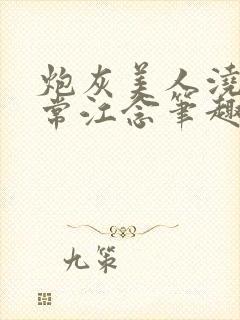 炮灰美人浇
常江念笔趣
九策